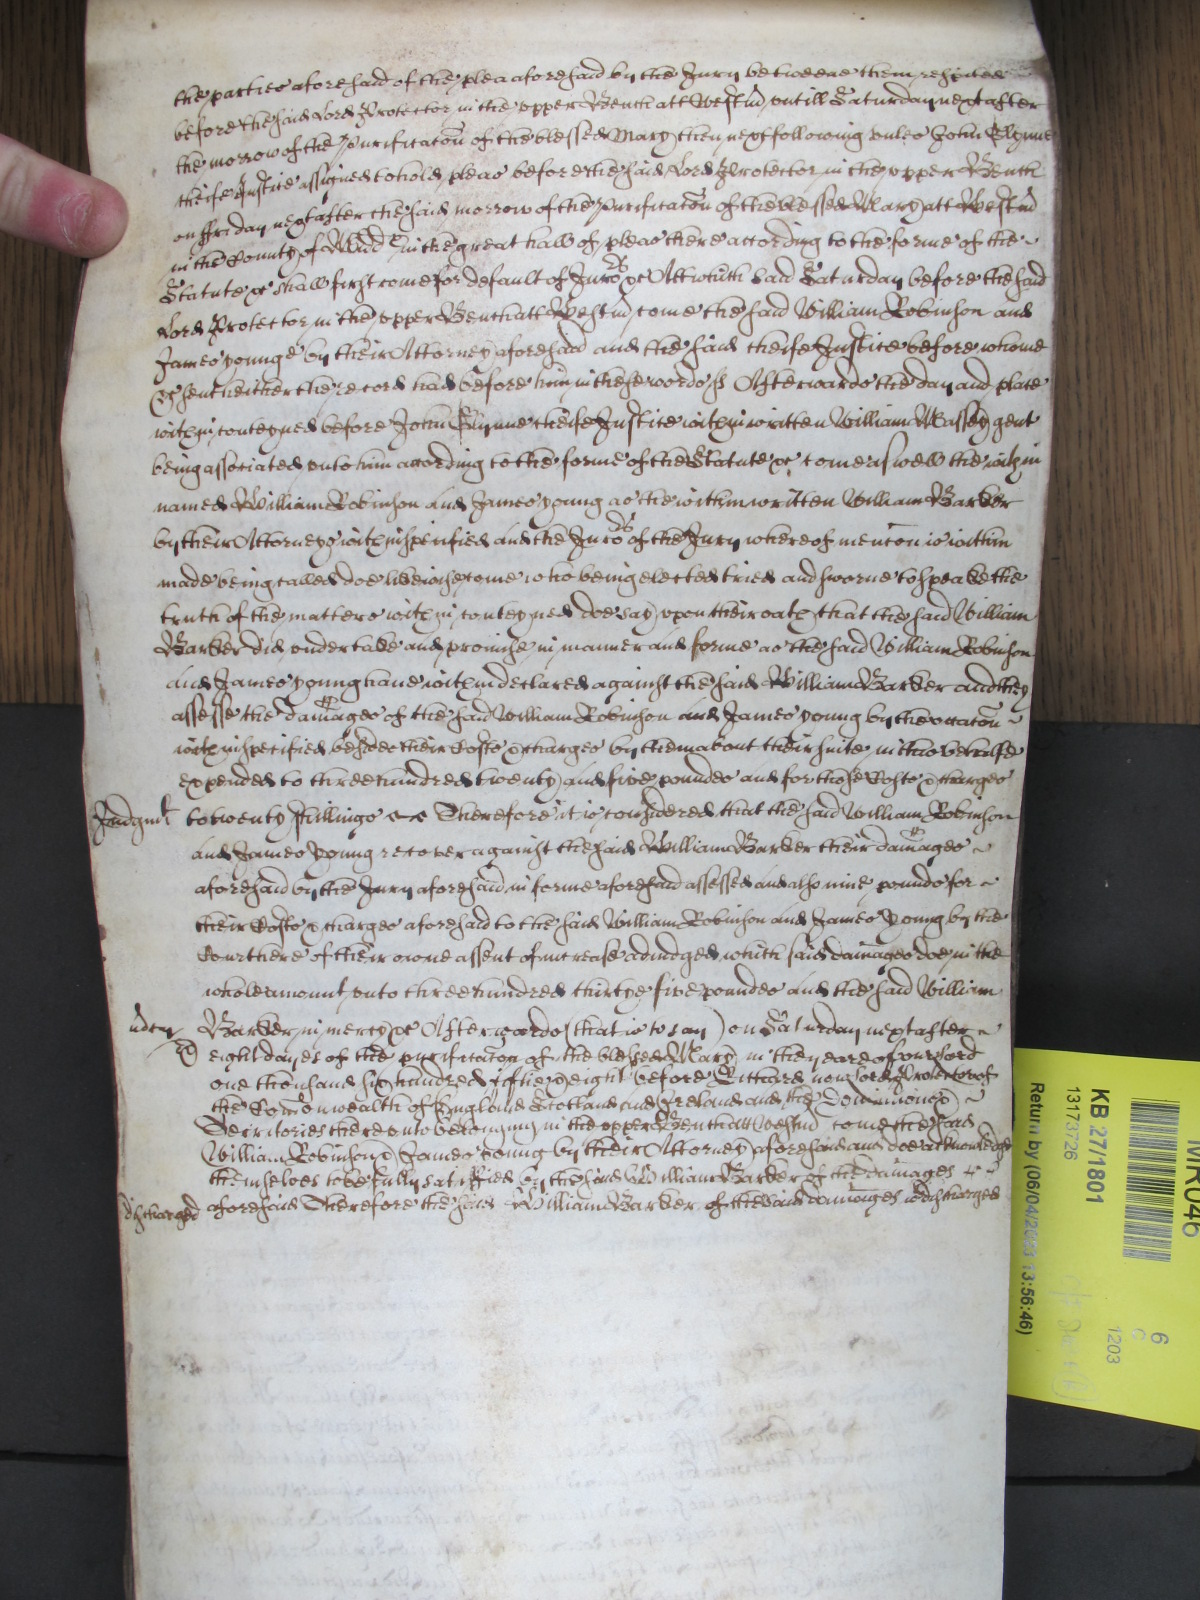 the parties aforesaid of the plea aforesaid by the Jury betweene them respited
before the said Lord Protector in the upper Bench att Westm untill Saturday next after
the morrow of the Purificacon of the blessed Mary then next following unles John Glynne
cheife Justice assigned to hold pleas before the said Lord Protector in the upper Bench
on ffriday next after the said morrow of the Purificacon of the blessed Mary att Westm
in the County of Midd in the great hall of pleas there according to the forme of the
Statute &c shall first come for default of Juro rs &c Att which said Saturday before the said
Lord Protector in the upper Bench att Westm come the said William Robinson and
James younge by their Attorney aforesaid and the said cheife Justice before whome
&c sent heither the record had before him in these wordes ss Afterwards the day and place
within conteyned before John Glynne cheife Justice within written William Massey gent
being associated unto him according to the forme of the Statute &c come aswell the within
named William Robinson and James young as the within written William Barker
by their Attorneys within specified and the Juro rs of the Jury whereof mencon is within
made being called doe likewise come who being elected tried and sworne to speake the
truth of the matters within conteyned doe say upon their oath that the said William
Barker did undertake and promise in manner and forme as the said William Robinson
and James young have within declared against the said William Barker and they
assesse the damages of the said William Robinson and James young by the occacon
within specified beside their Costs & charges by them about their suite in this behalfe
expended to three hundred twenty and five poundes and for those Costs & charges
Judgmt to twenty shillings Therefore it is considered that the said William Robinson
and James Young recover against the said William Barker their damages
aforesaid by the Jury aforesaid in forme aforesaid assessed and also nine pounds for
their Costs & charges aforesaid to the said William Robinson and James Young by the
Court here of their owne assent of increase adiudged which said damages doe in the
whole amount unto three hundred thirty five poundes and the said William
Barker in mercy &c Afterwards (that is to say) on Saturday next after
eight dayes of the purificacon of the blessed Mary in the yeare of our lord
one thousand six hundred fiftie & eight before Richard now lord Protector of
the Comon wealth of England Scotland and Ireland and the Dominions &
Territories thereunto belonging in the upper Bench att Westm come the said
William Robinson & James Young by their Attorney aforesaid and doe acknowledge
themselves to be fully satisfied by the said William Barker of the damages
discharged aforesaid Therefore the said William Barker of the said damages is discharged
KB 27/1801
1317326
Return by (06/04/2023 13:56:46)
6
C
1203